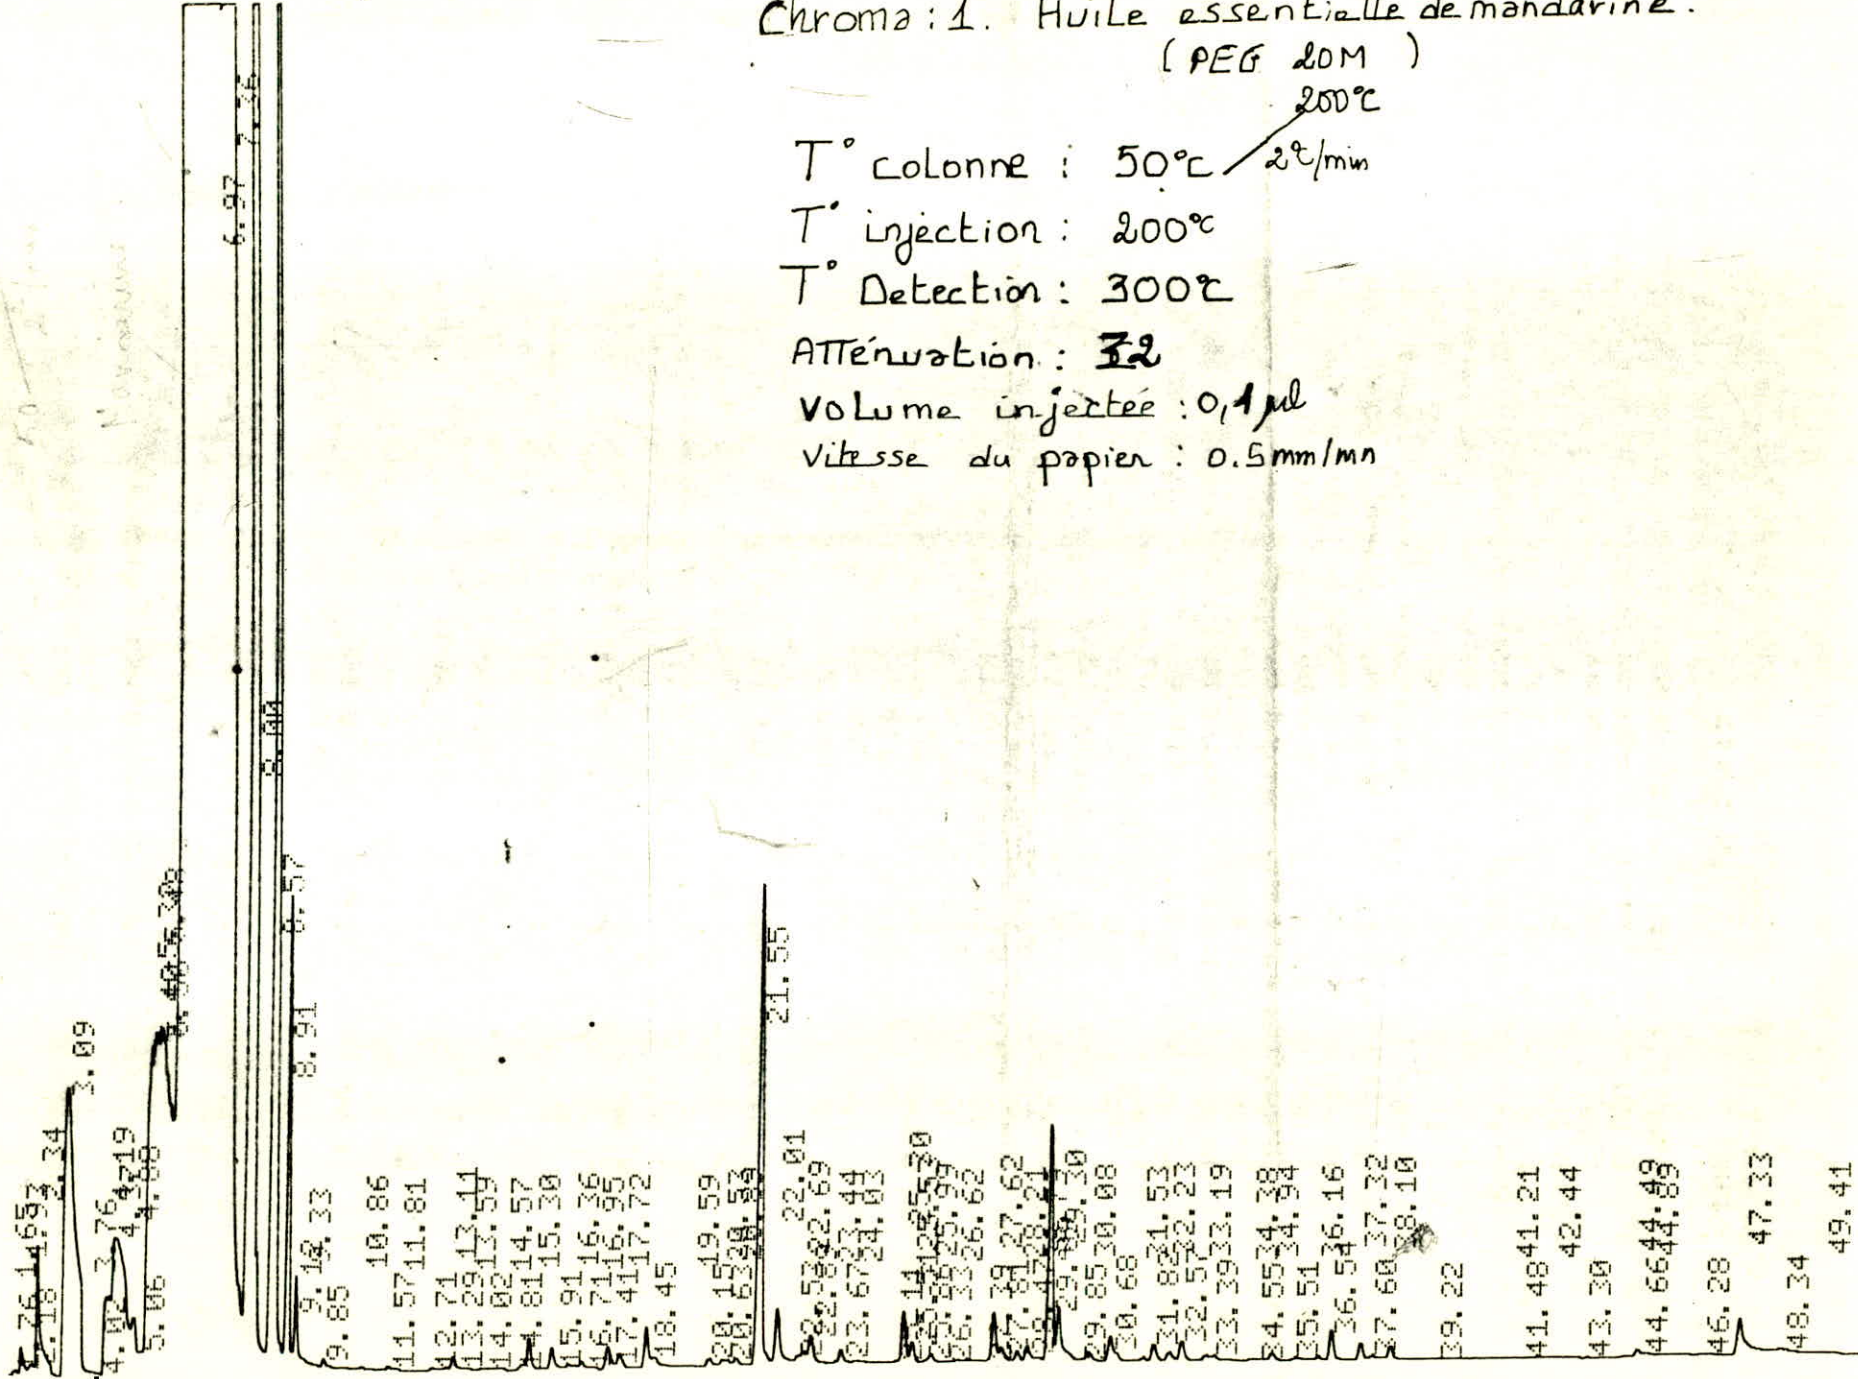 Chroma : 1. Huile essentielle de mandarine.
( PEG 20M )
200°C
T° colonne : 50°C 2°C/min
T° injection : 200°C
T° Detection : 300°C
ATTénuation : 32
Volume injectée : 0,1 µl
Vitesse du papier : 0.5mm/mn
6.97
7.36
8.00
8.57
8.91
3.09
2.34
3.76
4.02
5.06
9.33
9.85
10.86
11.57
11.81
12.71
13.11
13.29
13.59
14.02
14.57
14.81
15.30
15.91
16.36
16.71
16.95
17.41
17.72
18.45
19.59
20.15
21.55
22.01
22.69
23.44
23.67
24.03
26.33
26.62
27.62
29.30
29.85
30.08
30.68
31.53
31.82
32.23
32.57
33.19
33.39
34.38
34.55
34.94
35.51
36.16
36.54
37.32
37.60
38.10
39.22
41.21
41.48
42.44
43.30
44.49
44.66
44.89
46.28
47.33
48.34
49.41